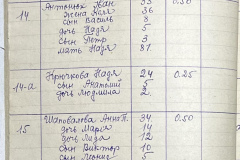 14 Антонюк Иван 33 0.50
жена Надя 36
сын Василь 8
дочь Надя 5
сын Петр 3
мать Надя 81
14-а Крючкова Надя 24 0.25
сын Анатолий 5
дочь Людмила 2
15 Шаповалова Анна П. 34 0.50
дочь Мария 14
дочь Лида 12
сын Виктор 10
сын Леонид 5